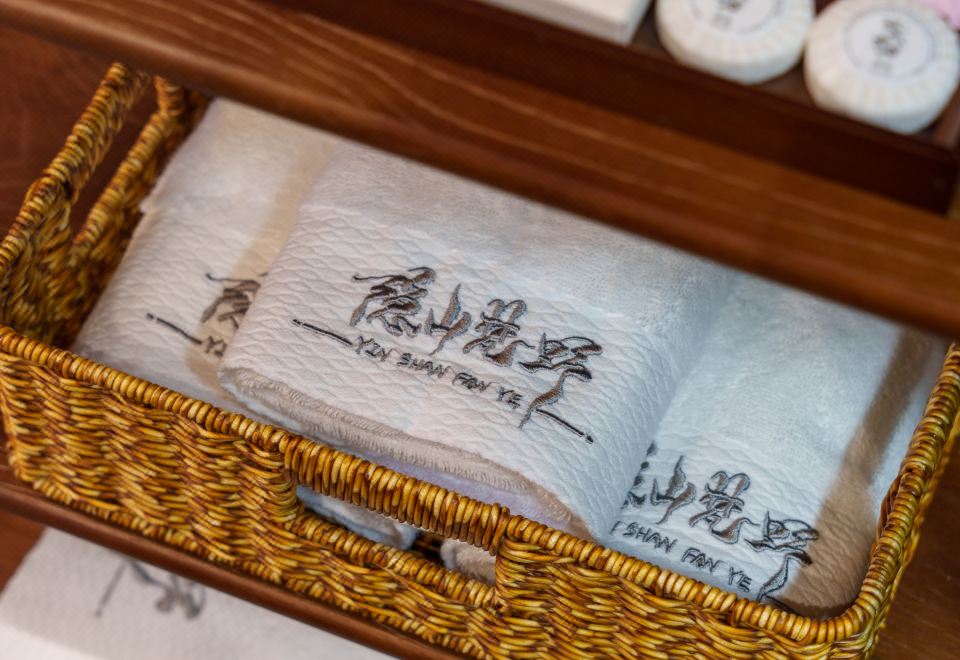 隐山梵野
YIN SHAN FAN YE
山梵野
SHAN FAN YE